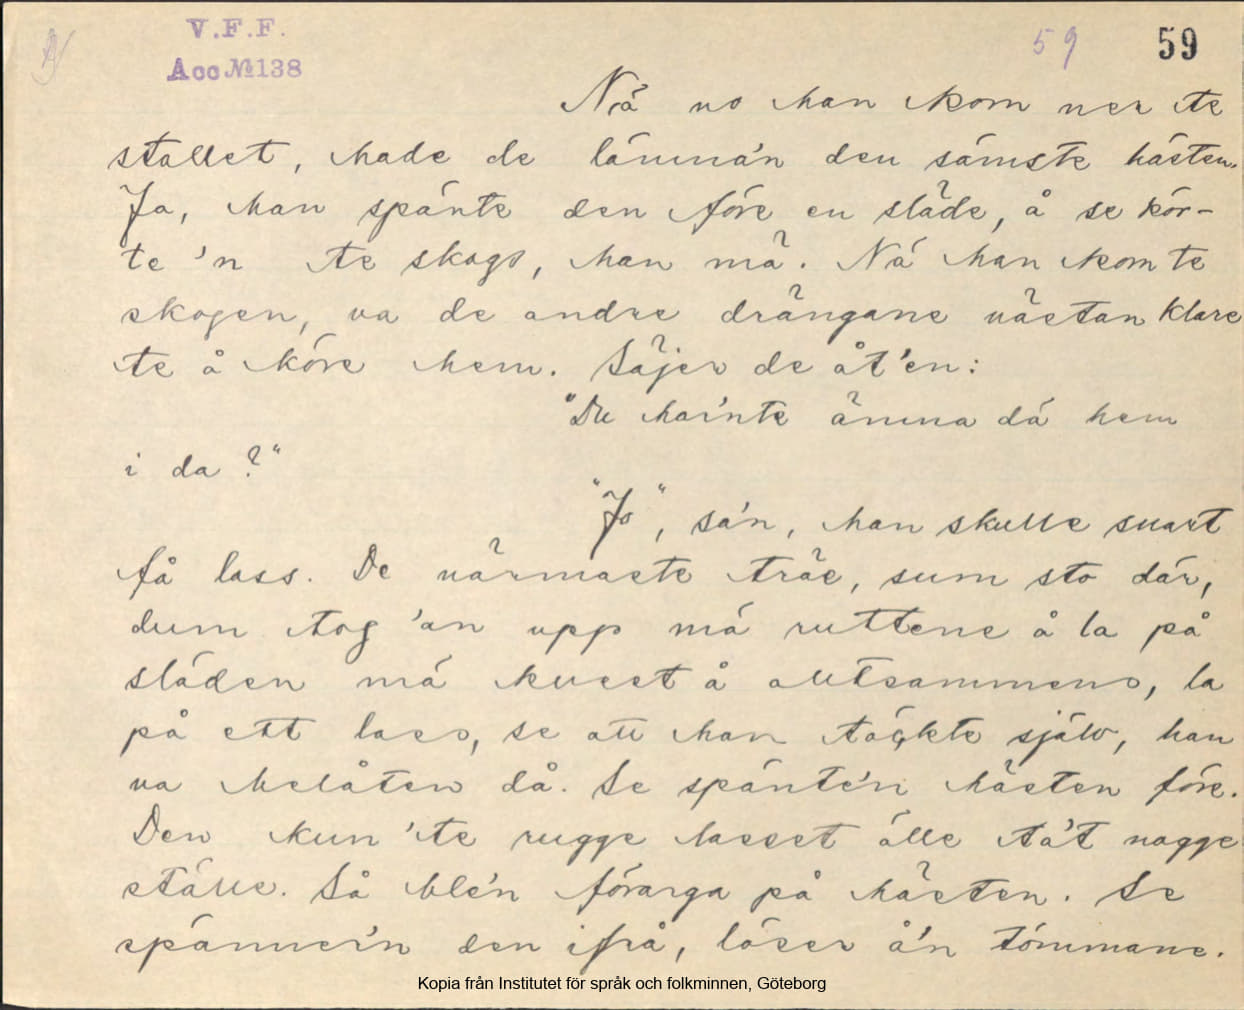 V.F.F.
Acc № 138
59 59
Nä no han kom ner te
stallet, hade de lämna'n den sämste hästen.
Ja, han spänte den före en släde, å se kör-
te 'n te skogs, han mä. Nä han kom te
skogen, va de andre drängane nästan klare
te å köre hem. Säjer de åt'en:
"Du ha'inte ämna dä hem
i da?"
"Jo", sa'n, han skulle snart
få lass. De närmaste träe, sum sto där,
dum tog 'an upp mä ruttene å la på
släden mä kvest å alltsammens, la
på ett lass, se att han täckte själv, han
va belåten då. Se spänte'n hästen före.
Den kun 'te rugge lasset älle ta't nagge
ställe. Så ble'n förarga på hästen. Se
spänner'n den ifrå, löser å'n tömmane.
Kopia från Institutet för språk och folkminnen, Göteborg